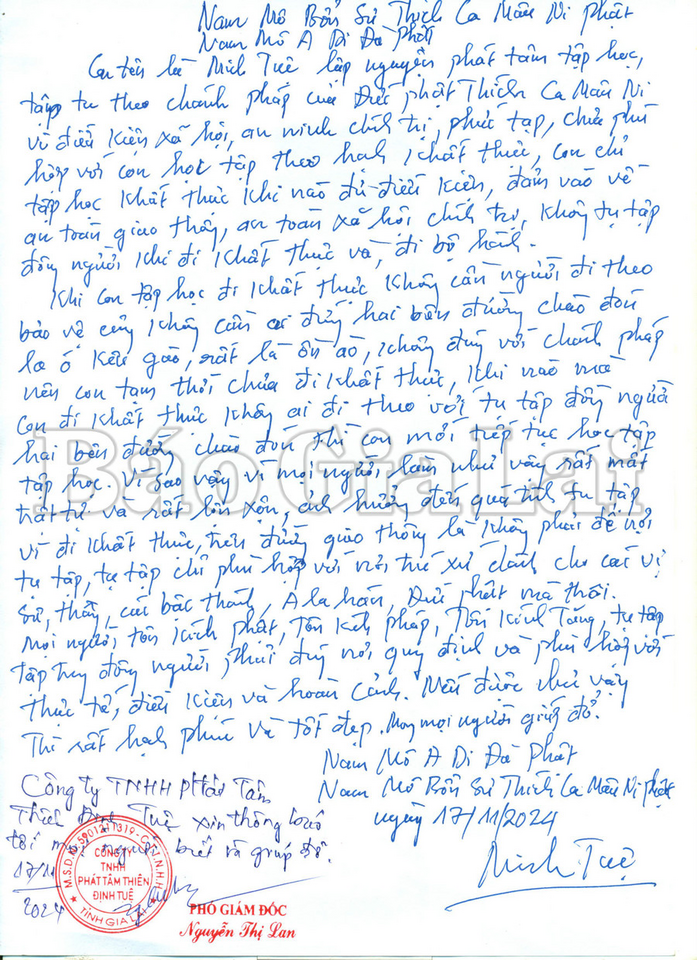 Nam Mô Bổn Sư Thích Ca Mâu Ni Phật
Nam Mô A Di Đà Phật
Con tên là Minh Tuệ lập nguyện, phát tâm tập học,
tập tu theo chánh pháp của Đức Phật Thích Ca Mâu Ni
vì điều kiện xã hội, an ninh chính trị, phức tạp, chưa phù
hợp với con học tập theo hạnh khất thức, con chỉ
tập học khất thức khi nào đủ điều kiện, đảm vào về
an toàn giao thông, an toàn xã hội chính trị, không tụ tập
đông người khi đi khất thức và đi bộ hành.
Khi con tập học đi khất thức không cần người đi theo
bảo vệ cũng không cần ai đứng hai bên đường chào đón
la ó kêu gào, rất là ồn ào, không đúng với chánh pháp
nên con tạm thời chưa đi khất thức, khi nào mà
con đi khất thức không ai đi theo với tụ tập đông người
hai bên đường chào đón thì con mới tiếp tục học tập
tập học. Vì sao vậy vì mọi người làm như vậy rất mất
trật tự và rất lộn xộn, ảnh hưởng đến quá trình tu tập
vì đi khất thức, trên đường giao thông là không phải để nơi
tụ tập, tụ tập chỉ phù hợp với nơi trú xứ dành cho các vị
Sư, thầy, các bậc thánh, A la hán, Đức Phật mà thôi.
Mọi người tôn kính phật, tôn kính pháp, Tôn kính Tăng, tụ tập
tập trung đông người phải đúng nơi quy định và phù hợp với
thực tế, điều kiện và hoàn cảnh. Nếu được như vậy
Thì rất hạnh phúc và tốt đẹp. Mong mọi người giúp đỡ.
Nam Mô A Di Đà Phật
Nam Mô Bổn Sư Thích Ca Mâu Ni phật
ngày 17/11/2024
Minh Tuệ
Công ty TNHH Phát Tâm
Thiền Định Tuệ xin thông báo
tới mọi người biết và giúp đỡ.
17/11
2024
M.S.D.N: 5901211319-C.T.T.N.H.H
CÔNG TY
TNHH
PHÁT TÂM THIỀN
ĐỊNH TUỆ
TỈNH GIA LAI
PHÓ GIÁM ĐỐC
Nguyễn Thị Lan
Báo Gia Lai